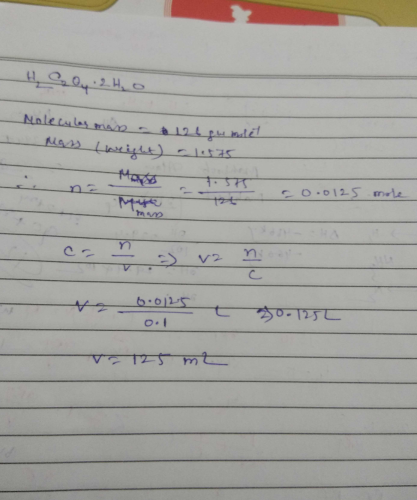 H₂C₂O₄·2H₂O
Molecular mass = 126 gm mol⁻¹
Mass (weight) = 1.575
∴ n = Mass / mass = 1.575 / 126 = 0.0125 mole
C = n / V ⇒ V = n / C
V = 0.0125 / 0.1 L ⇒ 0.125L
V = 125 mL